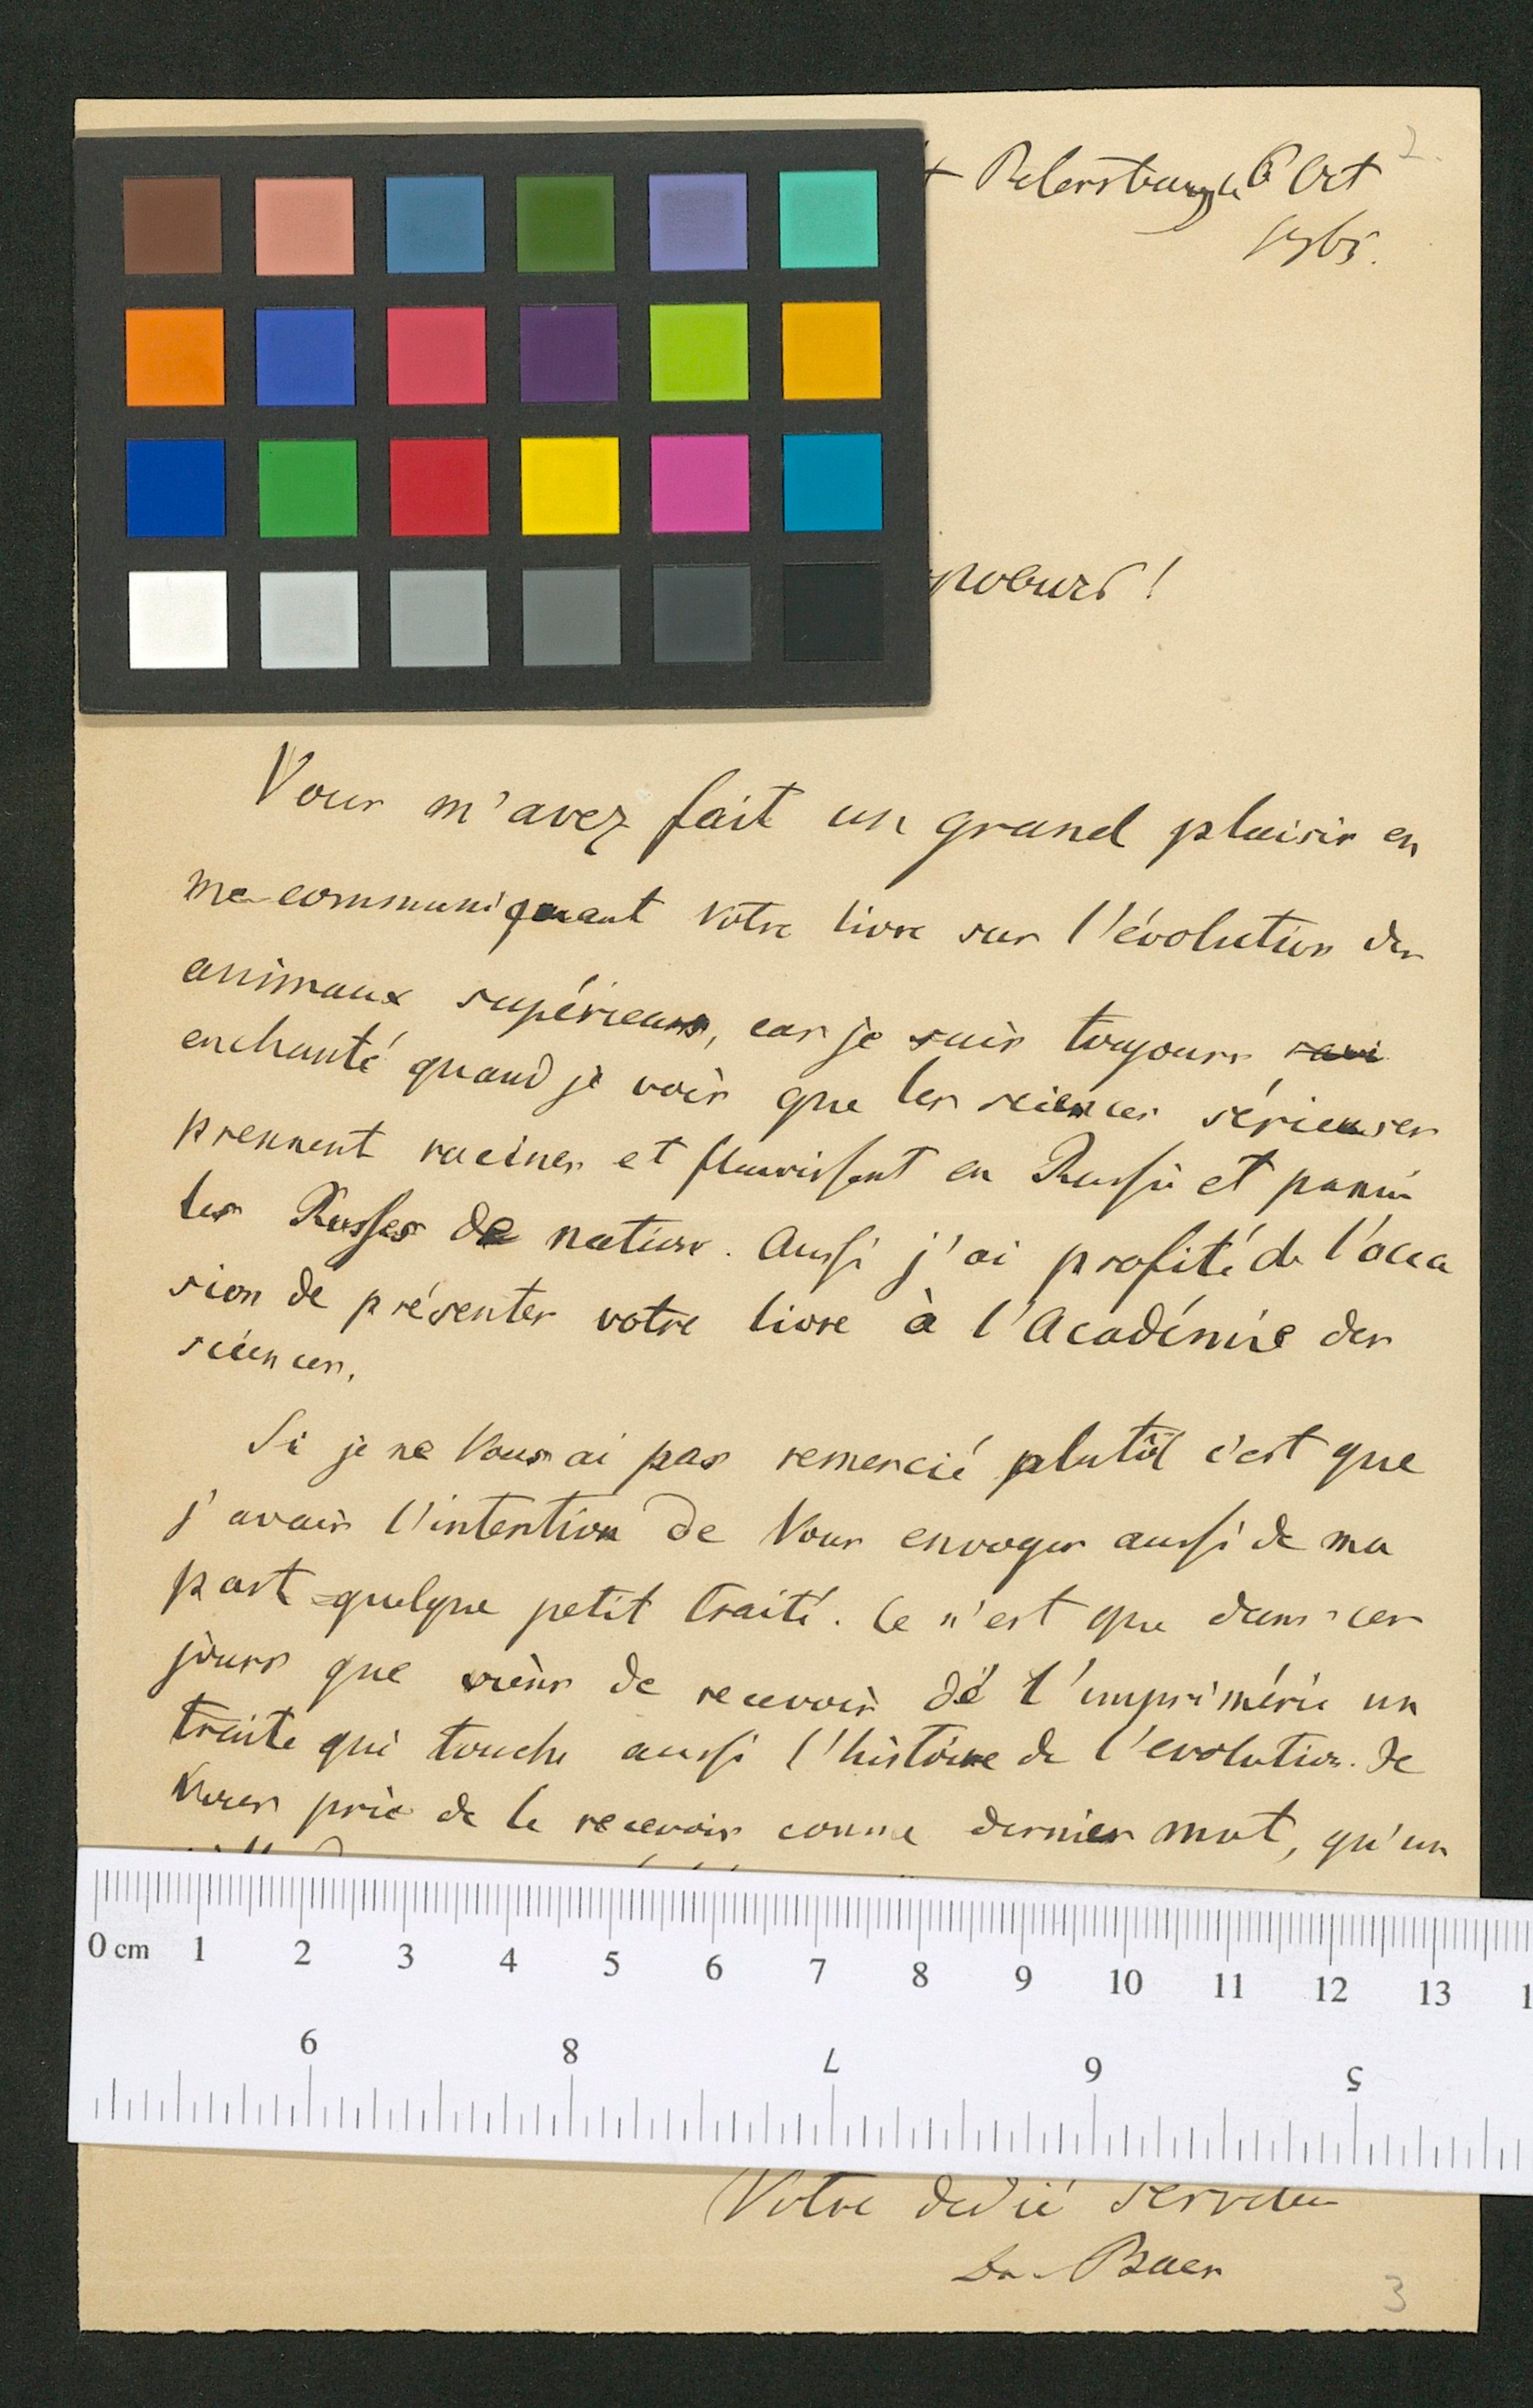 Petersburg le 6 Oct
2.
1865.
Vous m'avez fait un grand plaisir en
me communiquant votre livre sur l'évolution des
animaux supérieurs, car je suis toujours ravi
enchanté quand je vois que les sciences sérieuses
prennent racines et fleurissent en Russie et parmi
les Russes de nation. Aussi j'ai profité de l'occa
sion de présenter votre livre à l'Académie des
sciences.
Si je ne Vous ai pas remercié plutôt c'est que
j'avais l'intention de Vous envoyer aussi de ma
part quelque petit traité. Ce n'est que dans ces
jours que viens de recevoir dé l'imprimérie un
traite qui touche aussi l'histoire de l'evolution. Je
Vous prie de le recevoir comme dernier mot, qu'un
0 cm 1 2 3 4 5 6 7 8 9 10 11 12 13 1
9 8 7 6 5
Votre dedié serviteur
Baer
3